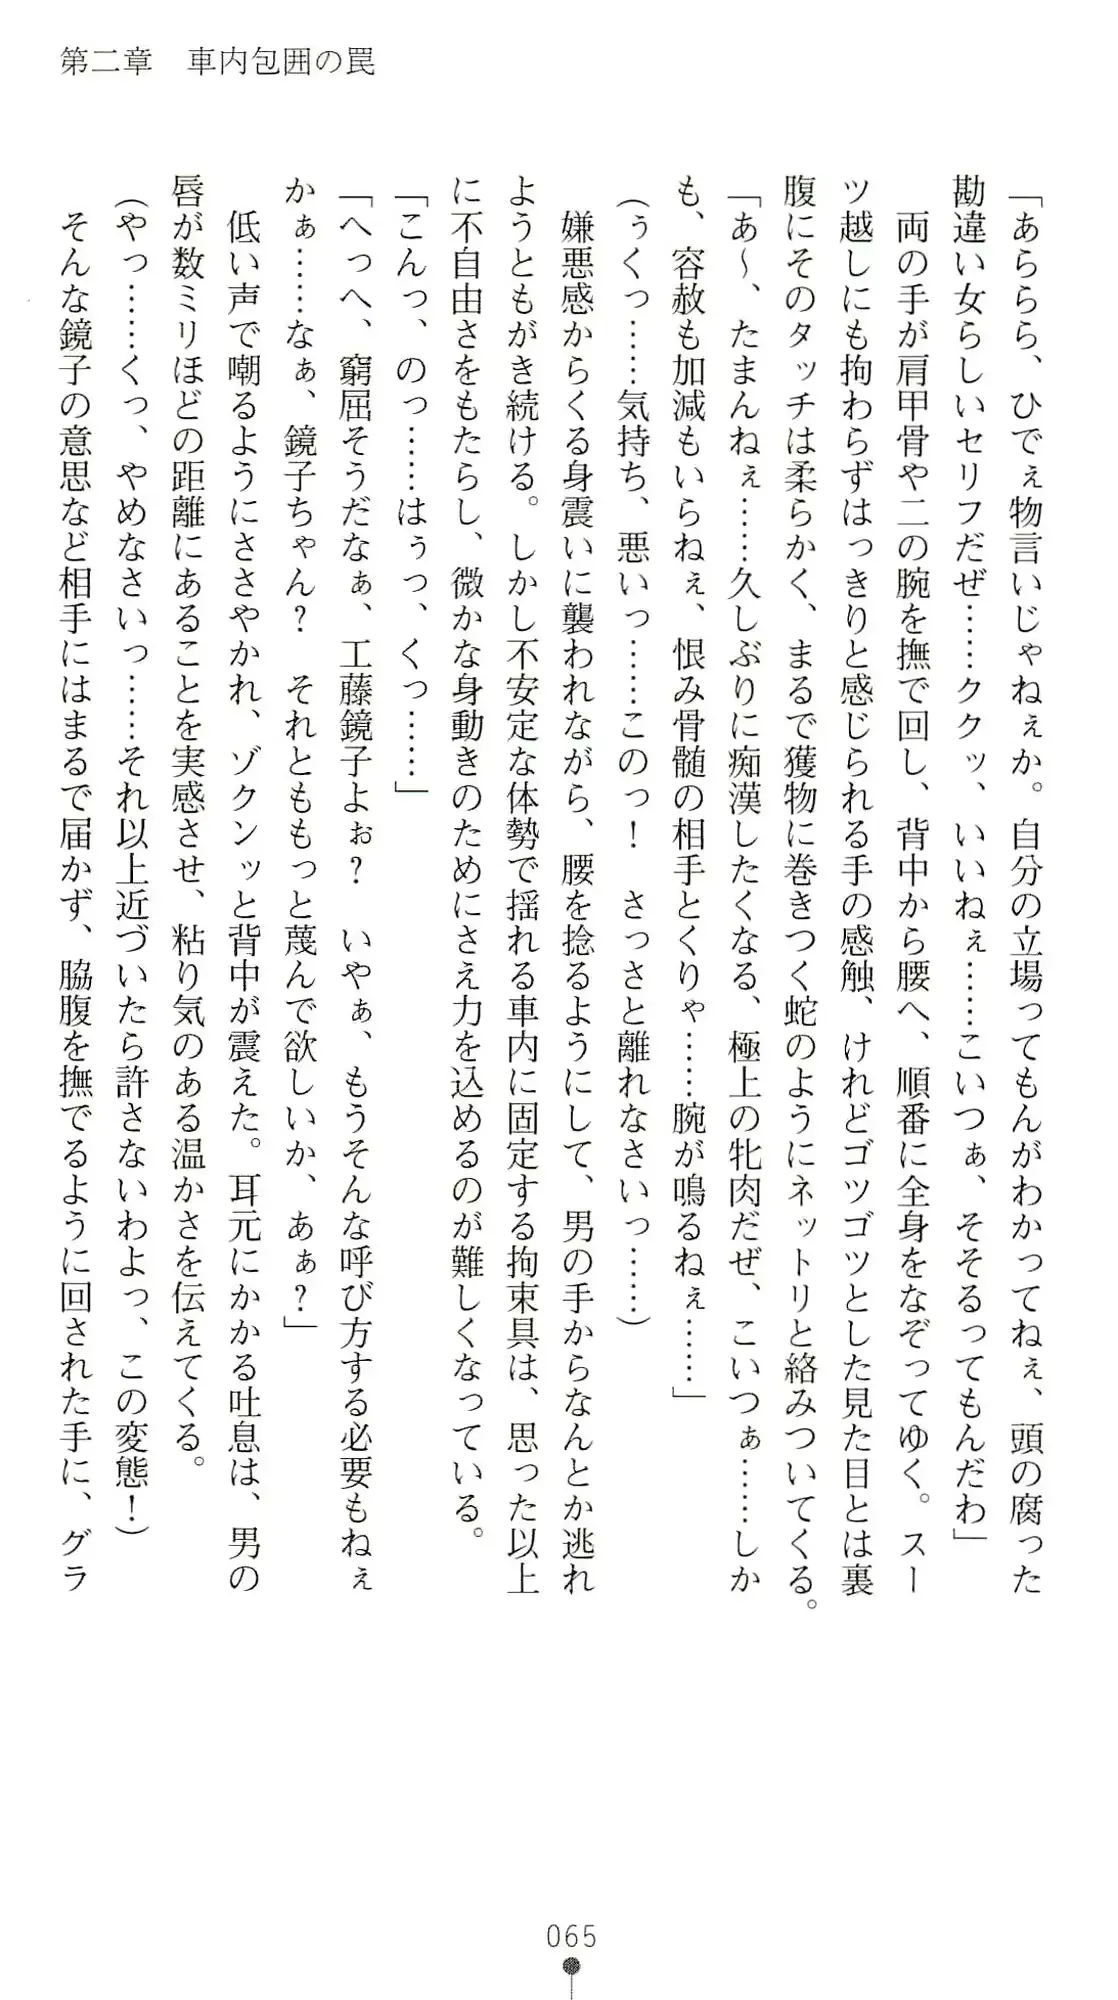 第二章　車内包囲の罠
「あららら、ひでぇ物言いじゃねぇか。自分の立場ってもんがわかってねぇ、頭の腐った
勘違い女らしいセリフだぜ……ククッ、いいねぇ……こいつぁ、そそるってもんだわ」
　両の手が肩甲骨や二の腕を撫で回し、背中から腰へ、順番に全身をなぞってゆく。スー
ツ越しにも拘わらずはっきりと感じられる手の感触、けれどゴツゴツとした見た目とは裏
腹にそのタッチは柔らかく、まるで獲物に巻きつく蛇のようにネットリと絡みついてくる。
「あ～、たまんねぇ……久しぶりに痴漢したくなる、極上の牝肉だぜ、こいつぁ……しか
も、容赦も加減もいらねぇ、恨み骨髄の相手とくりゃ……腕が鳴るねぇ……」
（ぅくっ……気持ち、悪いっ……このっ！　さっさと離れなさいっ……）
　嫌悪感からくる身震いに襲われながら、腰を捻るようにして、男の手からなんとか逃れ
ようともがき続ける。しかし不安定な体勢で揺れる車内に固定する拘束具は、思った以上
に不自由さをもたらし、微かな身動きのためにさえ力を込めるのが難しくなっている。
「こんっ、のっ……はぅっ、くっ……」
「へっへ、窮屈そうだなぁ、工藤鏡子よぉ？　いやぁ、もうそんな呼び方する必要もねぇ
かぁ……なぁ、鏡子ちゃん？　それとももっと蔑んで欲しいか、あぁ？」
　低い声で嘲るようにささやかれ、ゾクンッと背中が震えた。耳元にかかる吐息は、男の
唇が数ミリほどの距離にあることを実感させ、粘り気のある温かさを伝えてくる。
（やっ……くっ、やめなさいっ……それ以上近づいたら許さないわよっ、この変態！）
　そんな鏡子の意思など相手にはまるで届かず、脇腹を撫でるように回された手に、グラ
065